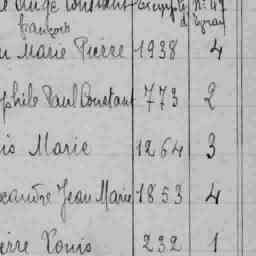 Ange Constant
François
Marie Pierre 1938 4
ophile Paul Constant 773 2
is Marie 1264 3
exandre Jean Marie 1853 4
ierre Louis 232 1